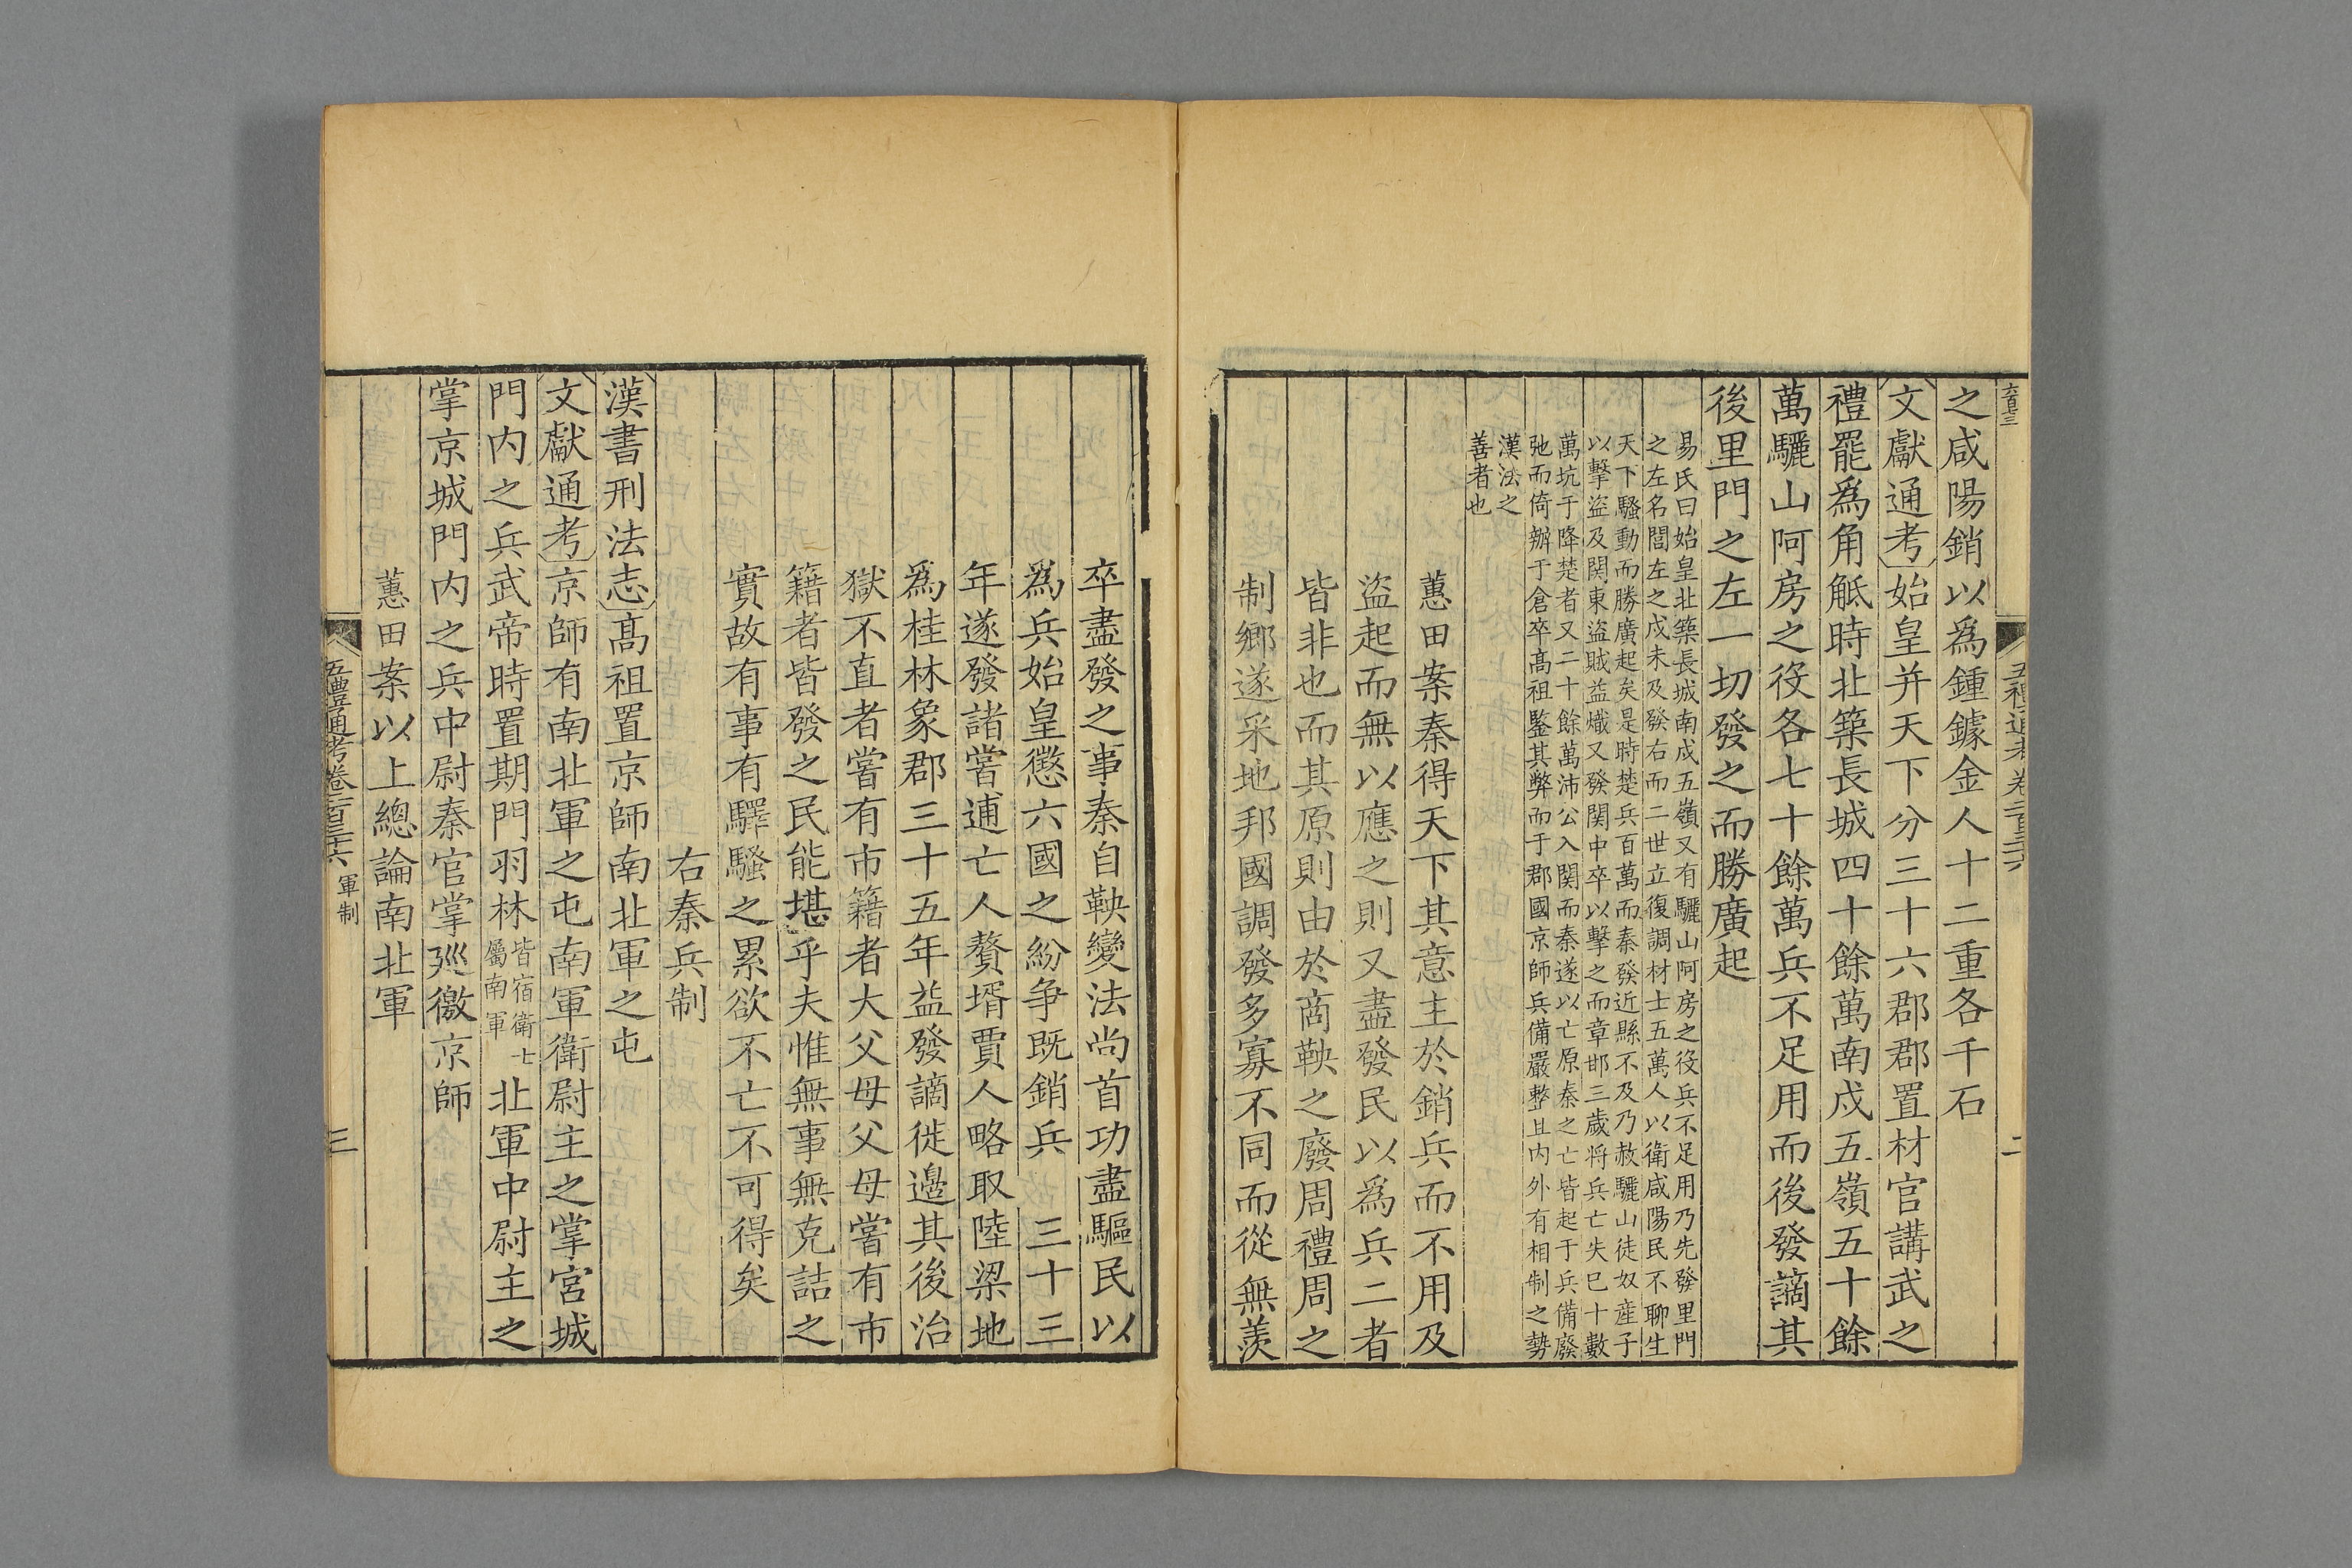 六百七三
五禮通考卷二百三十六
二
之咸陽銷以爲鍾鐻金人十二重各千石
文獻通考始皇并天下分三十六郡郡置材官講武之
禮罷爲角觝時北築長城四十餘萬南戍五嶺五十餘
萬驪山阿房之役各七十餘萬兵不足用而後發謫其
後里門之左一切發之而勝廣起
易氏曰始皇北築長城南戍五嶺又有驪山阿房之役兵不足用乃先發里門
之左名閭左之戍未及發右而二世立復調材士五萬人以衛咸陽民不聊生
天下騷動而勝廣起矣是時楚兵百萬而秦發近縣不及乃赦驪山徒奴産子
以擊盜及関東盜賊益熾又發関中卒以擊之而章邯三歲将兵亡失已十數
萬坑于降楚者又二十餘萬沛公入関而秦遂以亡原秦之亡皆起于兵備廢
弛而倚辦于倉卒髙祖鑒其弊而于郡國京師兵備嚴整且内外有相制之勢
漢法之
善者也
蕙田案秦得天下其意主於銷兵而不用及
盜起而無以應之則又盡發民以爲兵二者
皆非也而其原則由於商鞅之廢周禮周之
制鄉遂采地邦國調發多寡不同而從無羨
卒盡發之事秦自鞅變法尚首功盡驅民以
爲兵始皇懲六國之紛争既銷兵 三十三
年遂發諸嘗逋亡人贅壻賈人略取陸梁地
爲桂林象郡三十五年益發謫徙邊其後治
獄不直者嘗有市籍者大父母父母嘗有市
籍者皆發之民能堪乎夫惟無事無克詰之
實故有事有驛騷之累欲不亡不可得矣
右秦兵制
漢書刑法志髙祖置京師南北軍之屯
文獻通考京師有南北軍之屯南軍衛尉主之掌宫城
門内之兵武帝時置期門羽林皆宿衛士屬南軍北軍中尉主之
掌京城門内之兵中尉秦官掌廵徼京師
蕙田案以上總論南北軍
五禮通考卷二百三十六 軍制
三